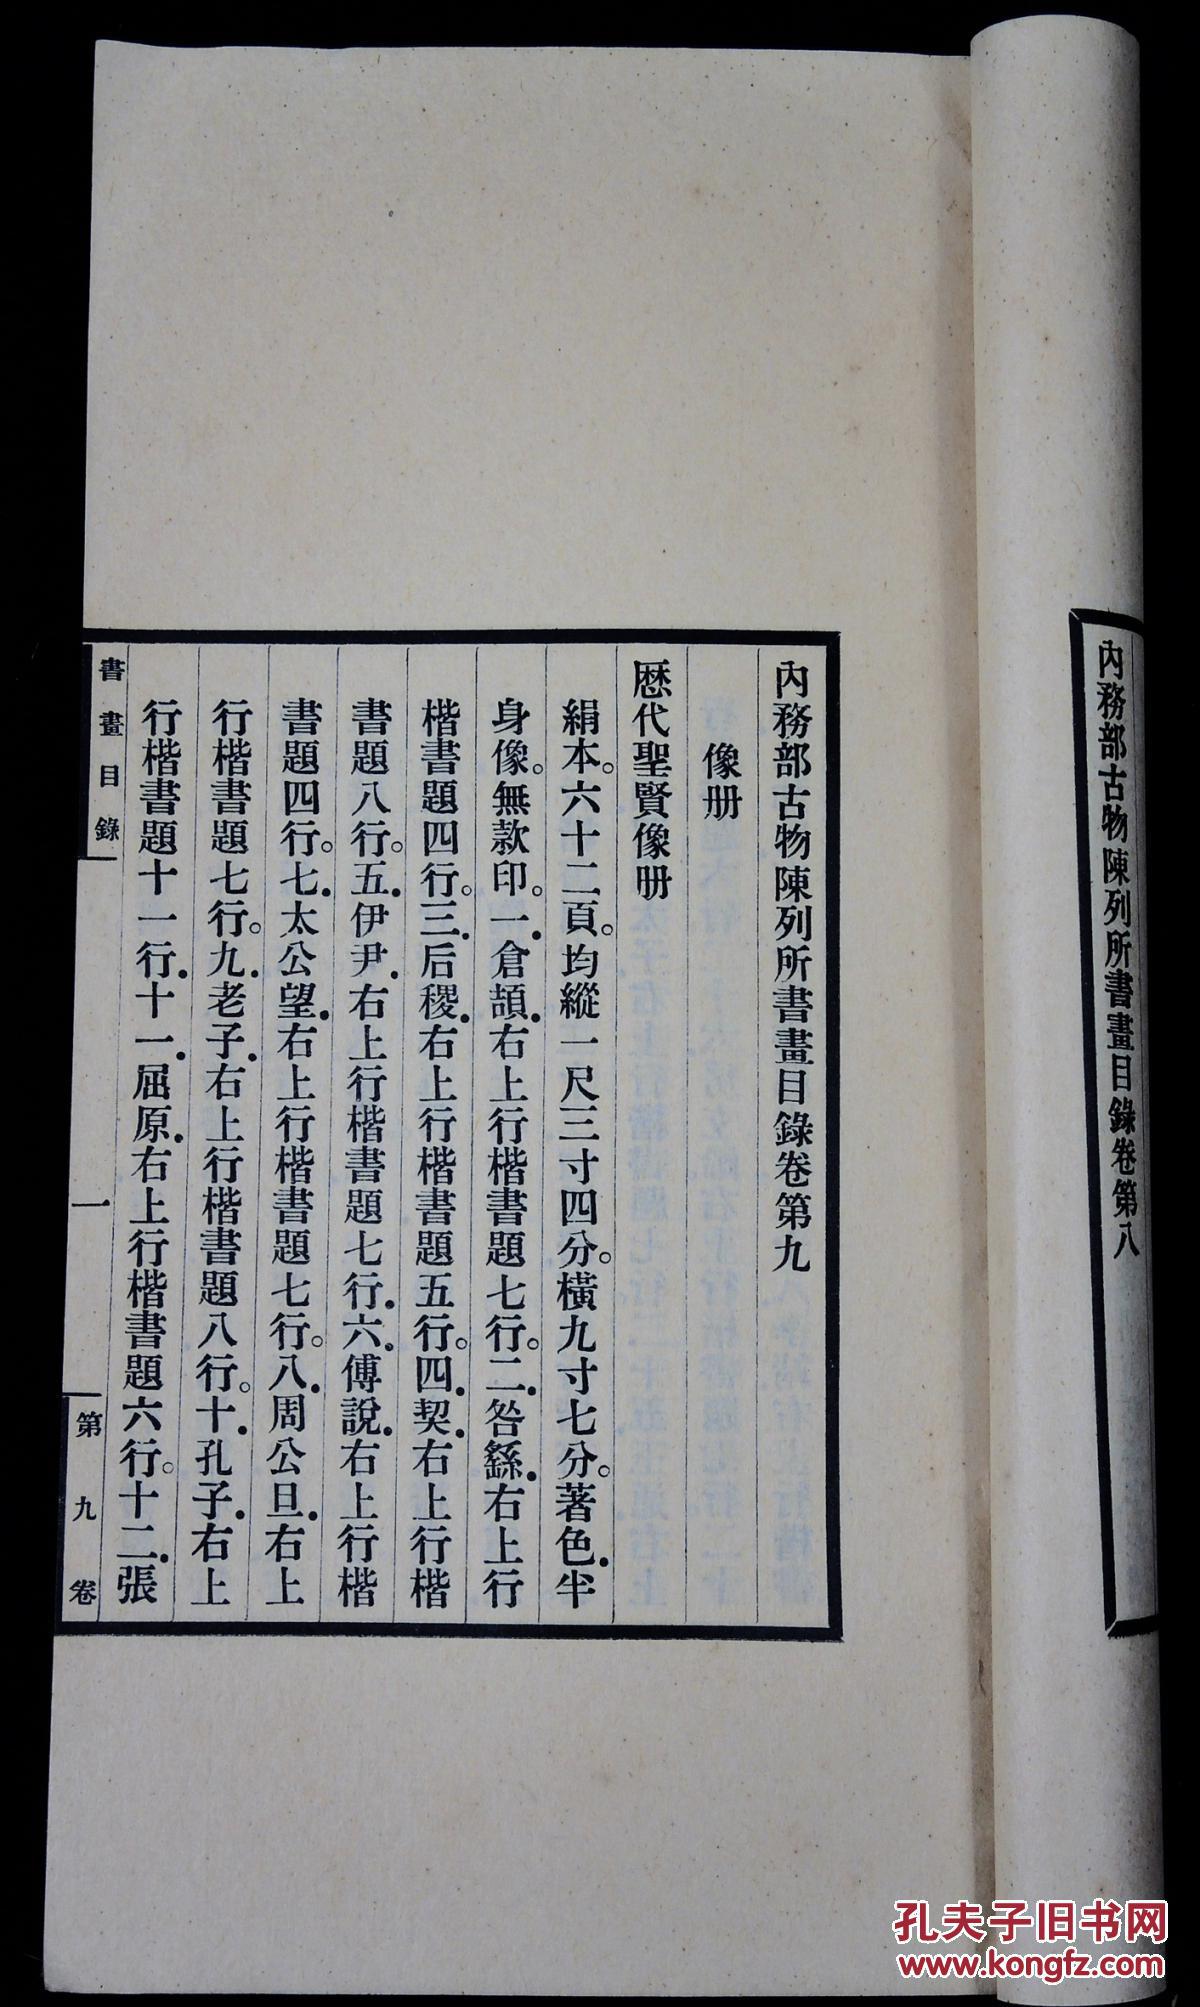 內務部古物陳列所書畫目錄卷第八
內務部古物陳列所書畫目錄卷第九
像册
歷代聖賢像册
絹本。六十二頁。均縱一尺三寸四分。橫九寸七分。著色.半
身像。無款印。一.倉頡.右上行楷書題七行。二.咎繇.右上行
楷書題四行。三.后稷.右上行楷書題五行。四.契.右上行楷
書題八行。五.伊尹.右上行楷書題七行.六.傅說.右上行楷
書題四行。七.太公望.右上行楷書題七行。八.周公旦.右上
行楷書題七行。九.老子.右上行楷書題八行。十.孔子.右上
行楷書題十一行.十一.屈原.右上行楷書題六行。十二.張
書畫目錄 一 第九卷
孔夫子旧书网
www.kongfz.com